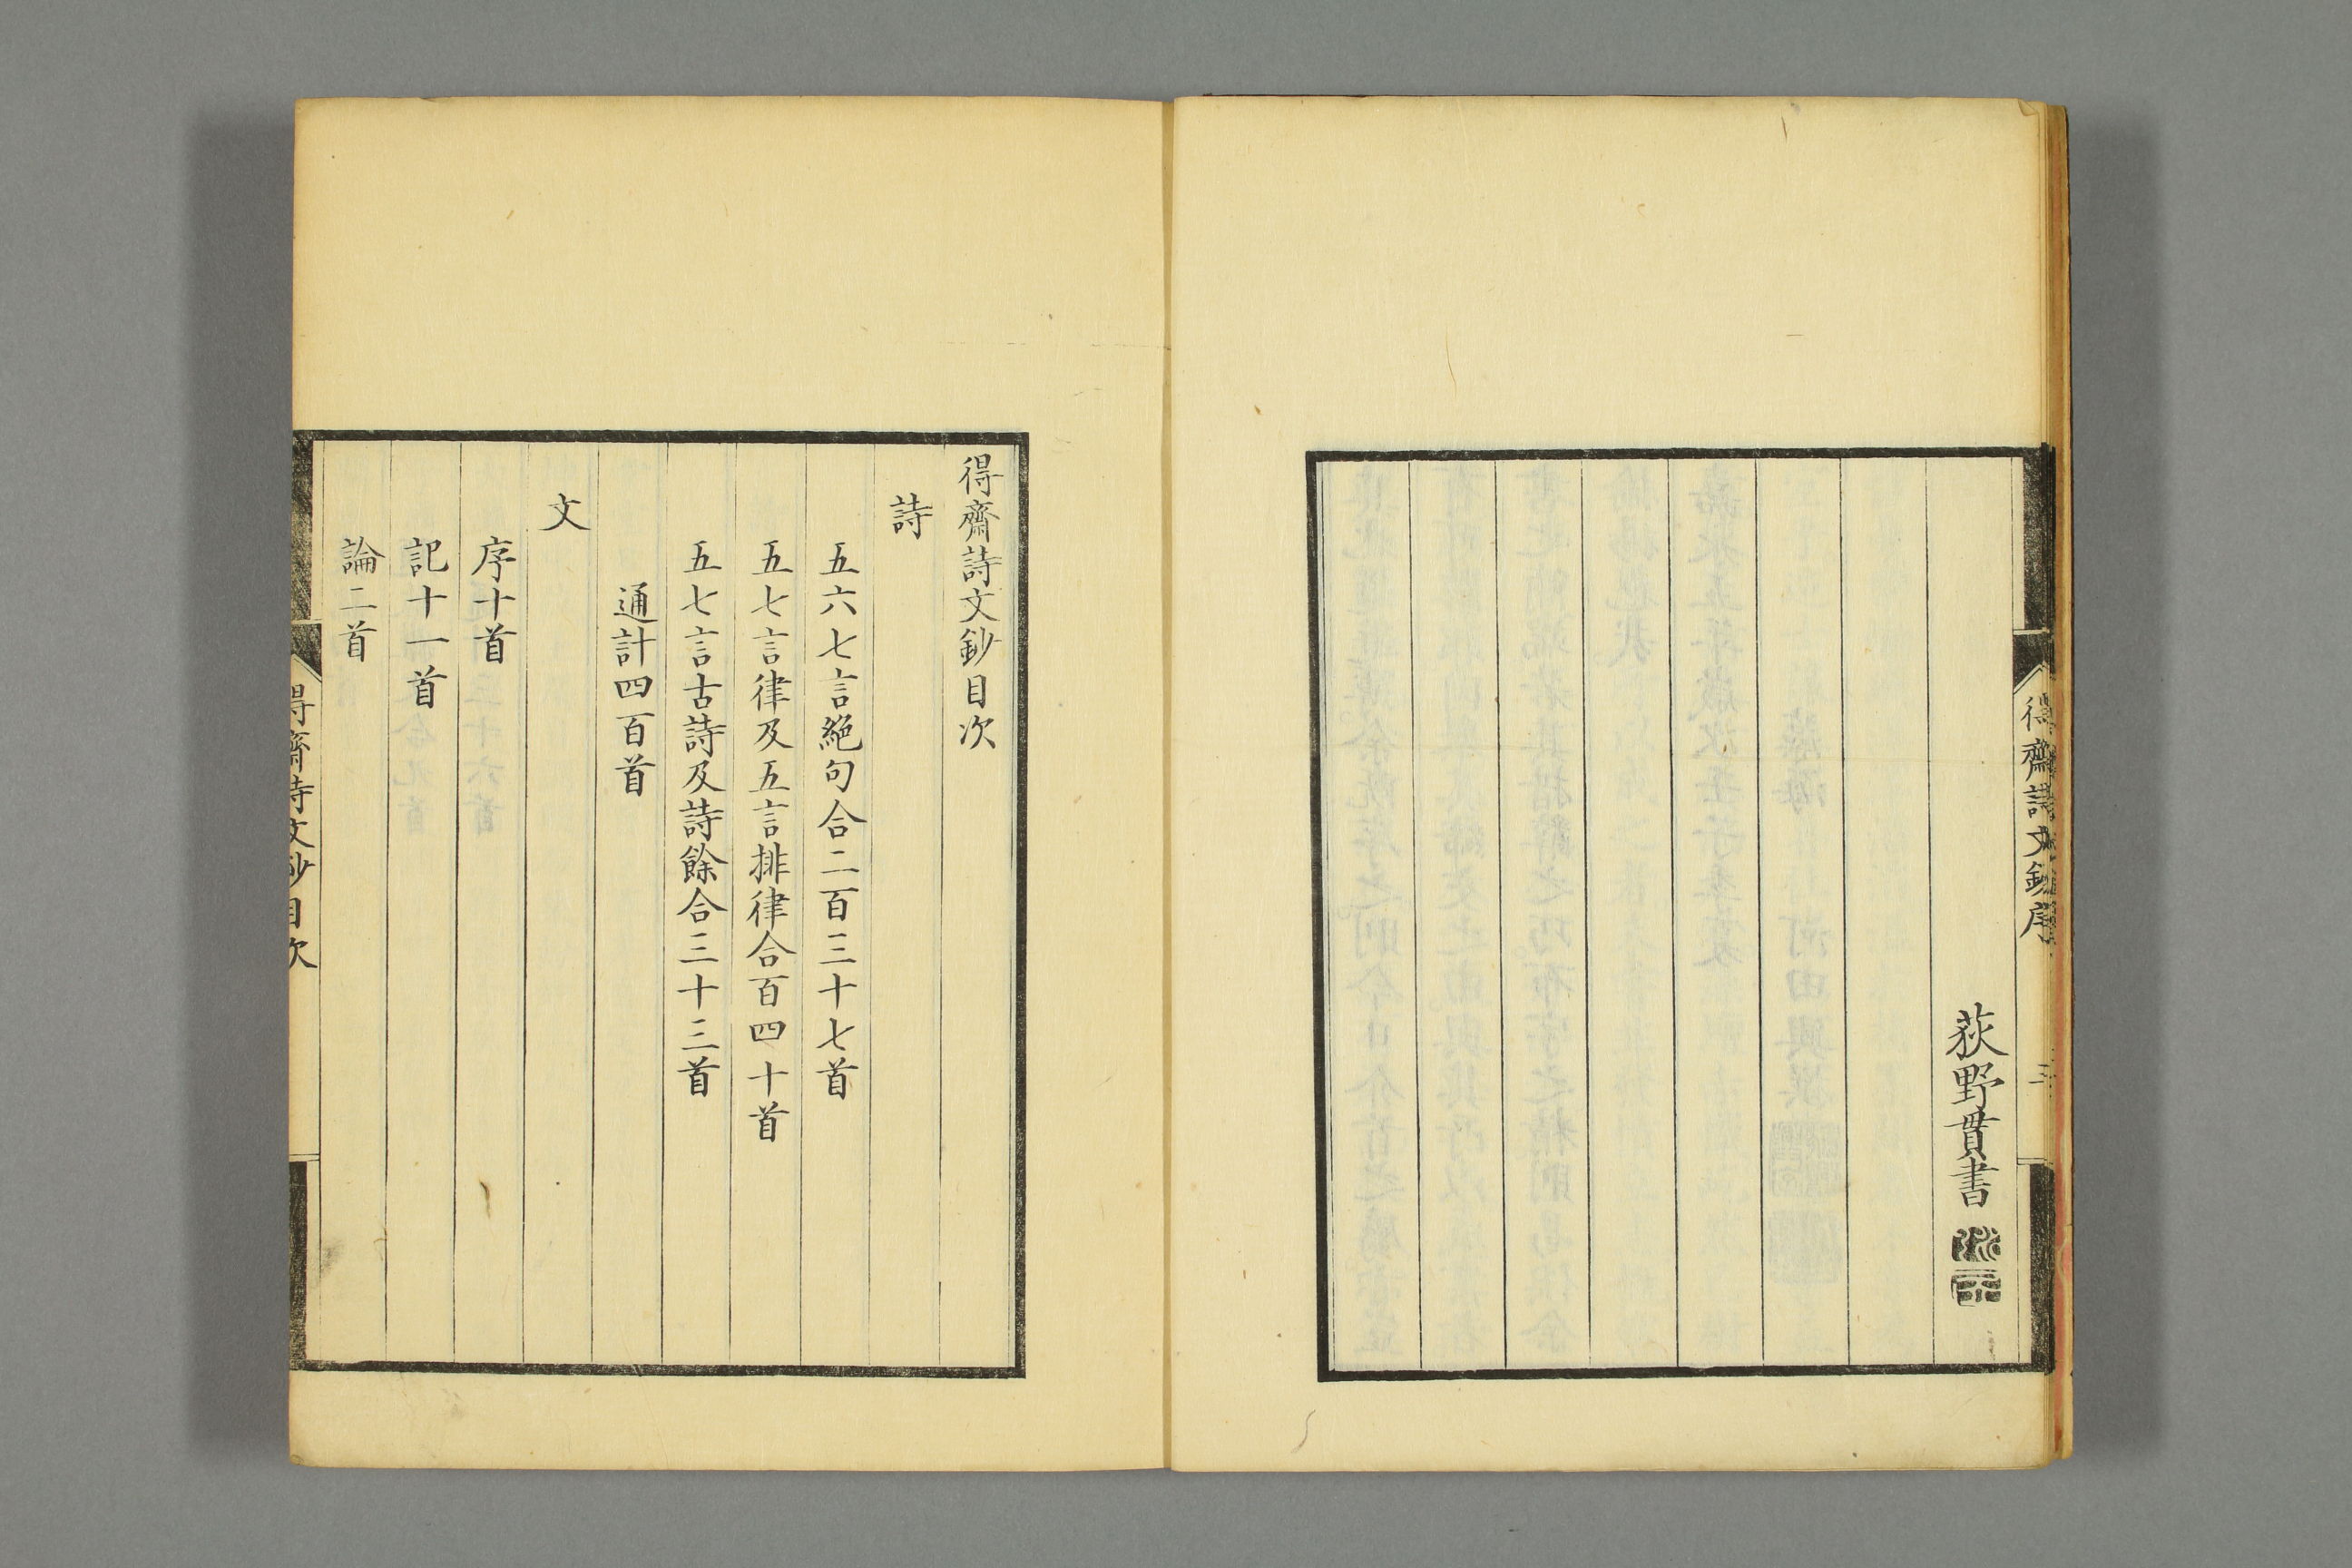 得齋詩文鈔序
三
荻野貫書
得齋詩文鈔目次
詩
五六七言絕句合二百三十七首
五七言律及五言排律合百四十首
五七言古詩及詩餘合三十三首
通計四百首
文
序十首
記十一首
論二首
得齋詩文鈔目次